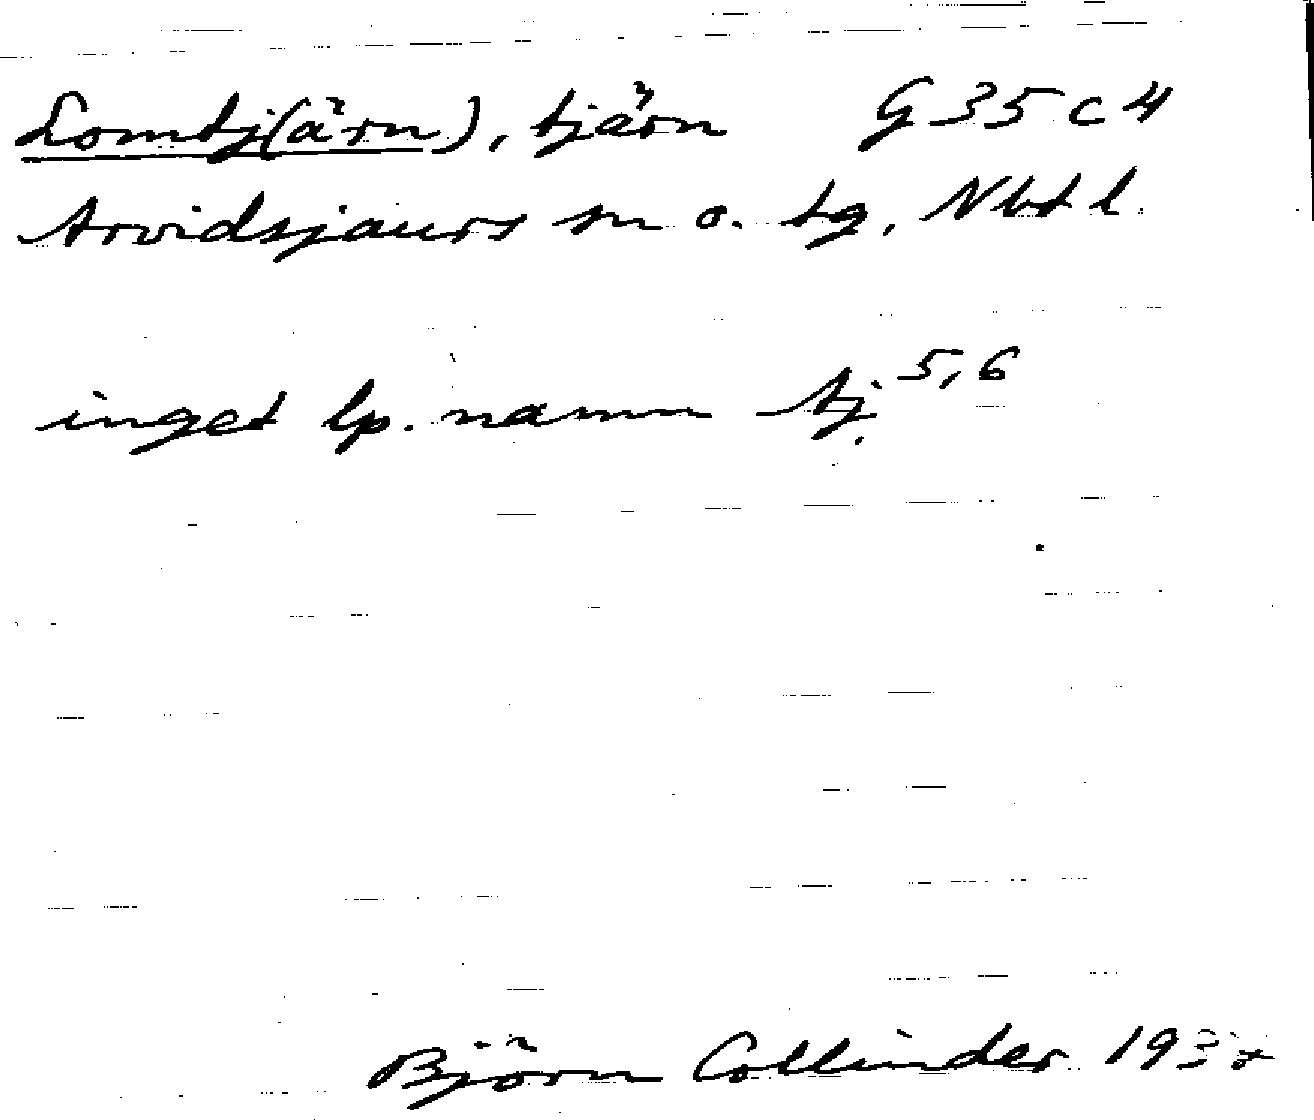 Lomtj(ärn), tjärn G 35 c 4
Arvidsjaurs sn o. tg, Nbt l.
inget lp. namn Aj. 5,6
Björn Collinder 193